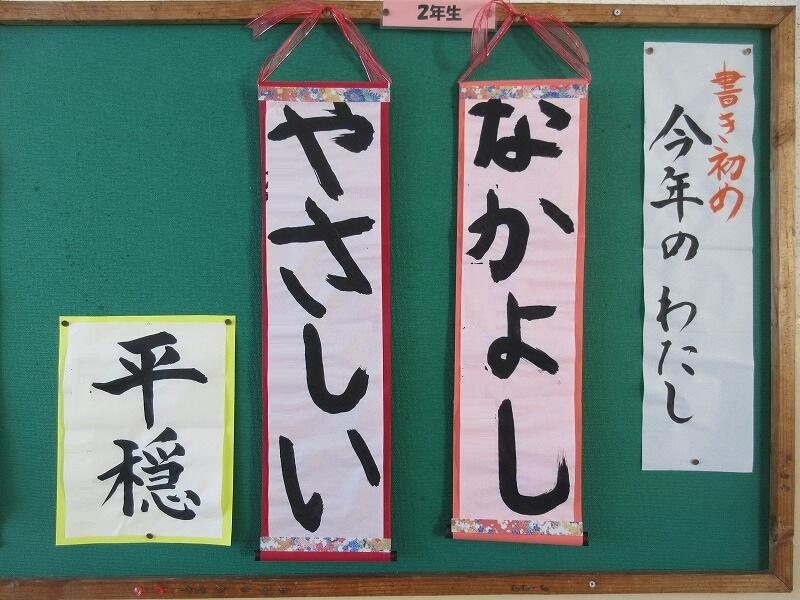 2年生
書き初め
今年の わたし
なかよし
やさしい
平穏